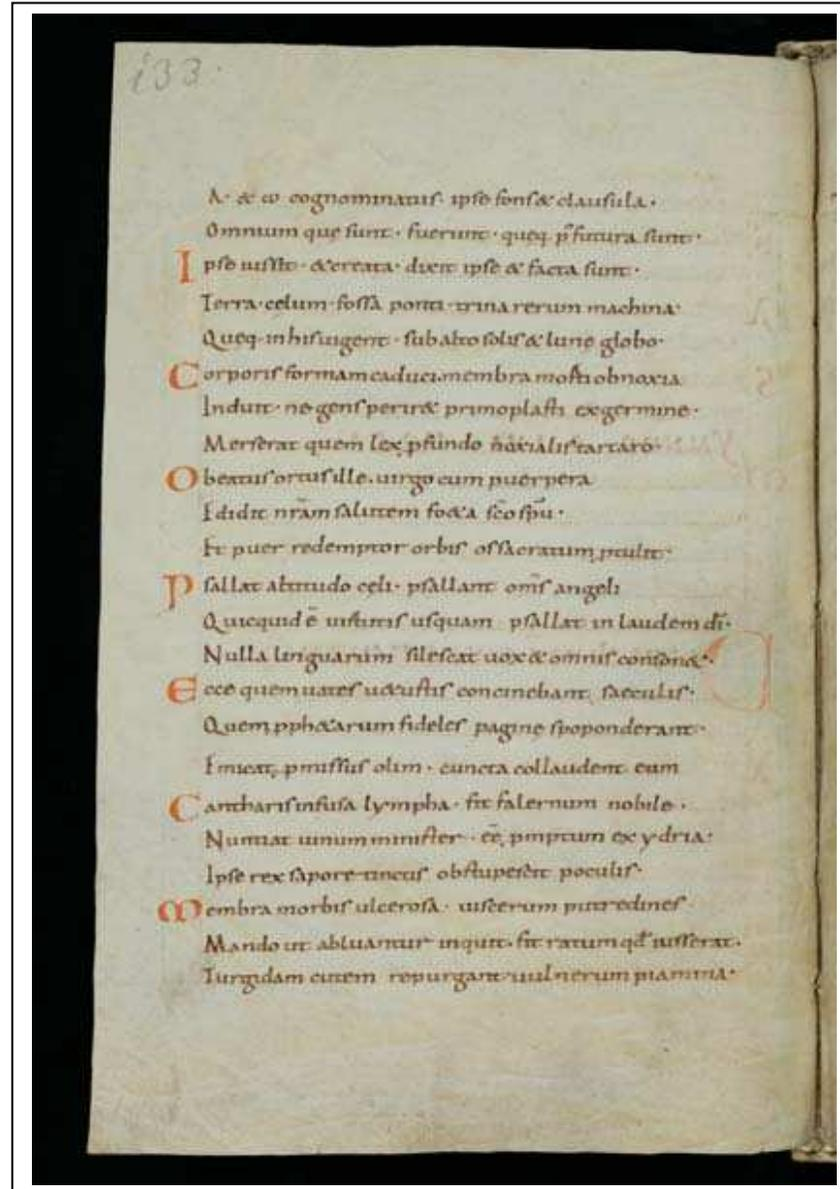 i33.
A· & ω cognominatus· ipse fons & clausula·
Omnium que sunt· fuerunt· queq· p̃futura sunt·
Ipse iussit· & creata· dixit ipse & facta sunt·
Terra· celum· fossa ponti· trina rerum machina·
Queq· in his uigent· sub alto solis & lune globo·
Corporis formam caduci· membra morti obnoxia
Induit· ne gens perir& primoplasti ex germine·
Merserat quem lex pfundo noxialis tartaro·
O beatus ortus ille· uirgo cum puerpera
Edidit nr̄am salutem foeta sc̄o sp̄u·
Et puer redemptor orbis os sacratum ptulit·
Psallat altitudo cęli· psallant om̄s angeli
Quicquid ē uirtutis usquam psallat in laudem dī·
Nulla linguarum silescat uox & omnis conson&·
Ecce quem uates u&ustis concinebant saeculis·
Quem pph&arum fideles pagine spoponderant·
Emicat pmissus olim· cuncta collaudent eum
Cantharis infusa lympha· fit falernum nobile·
Nuntiat uinum minister· eē pmptum ex ydria·
Ipse rex sapore tinctis obstupescit poculis·
Membra morbis ulcerosa· uiscerum putredines
Mando ut abluantur inquit· fit ratum qd̄ iusserat·
Turgidam cutem repurgant uulnerum piamina·